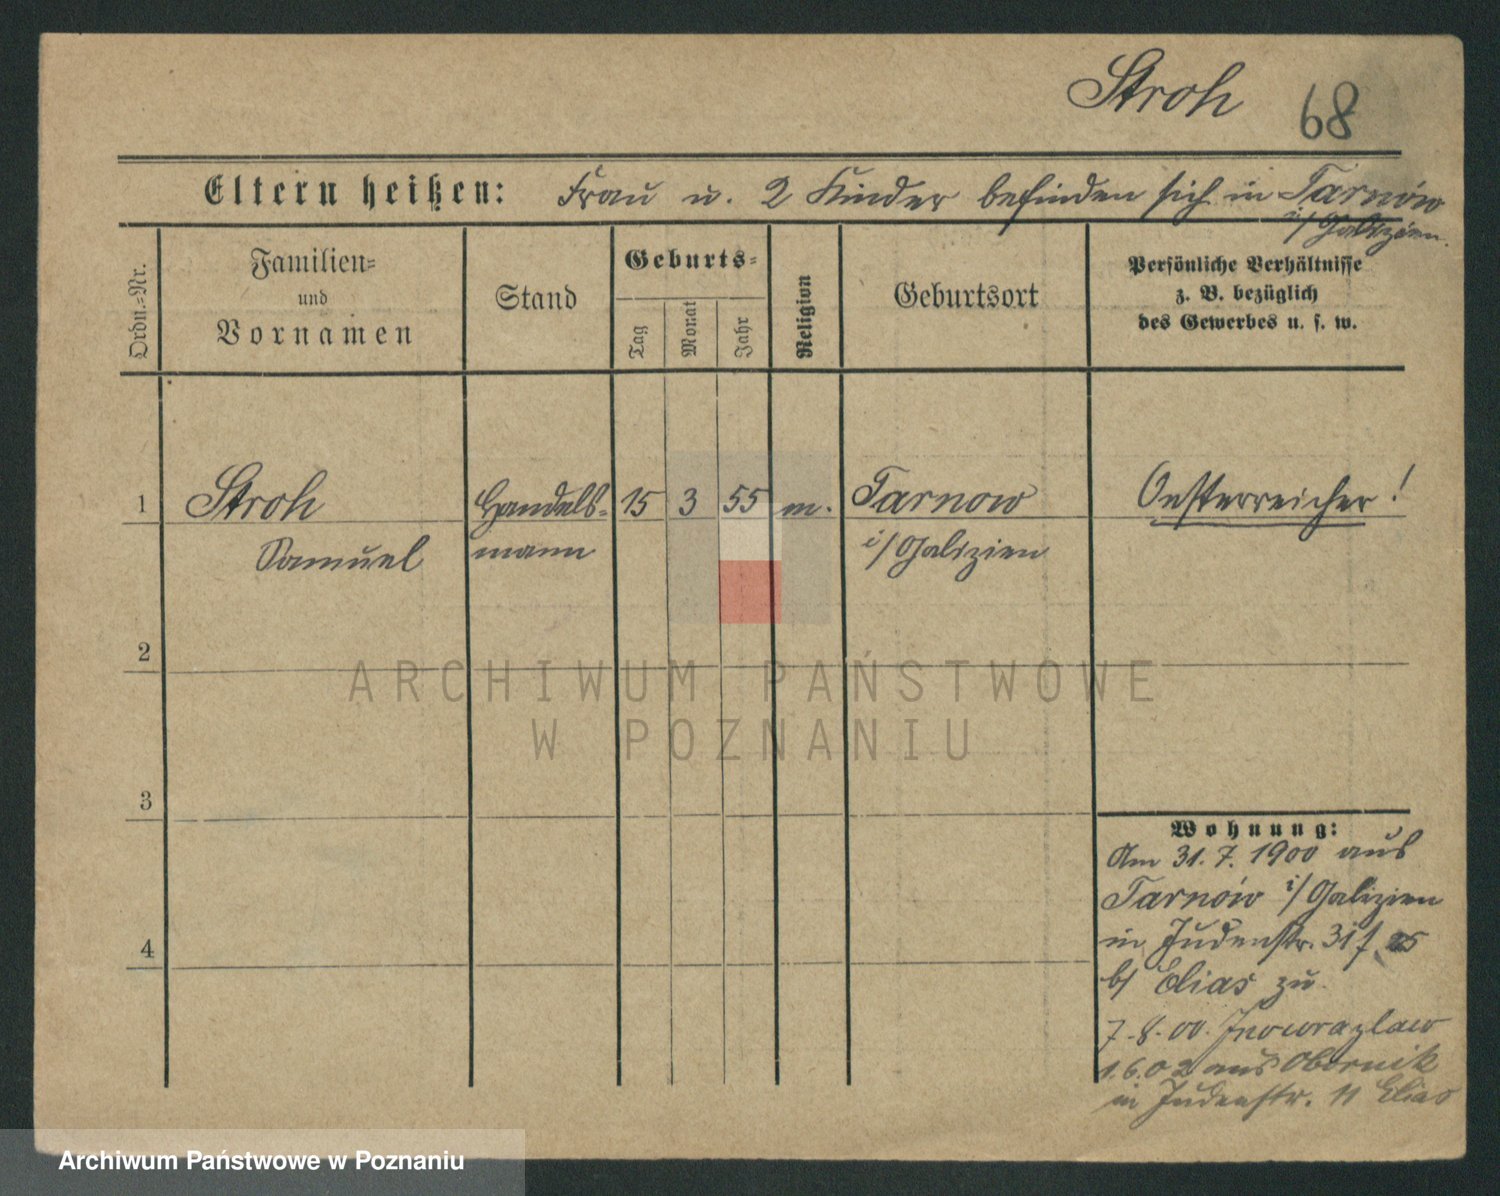 Stroh 68
Eltern heißen: Frau u. 2 Kinder befinden sich in Tarnów
i/Galizien.
Ordn.=Nr.
Familien=
und
Vornamen
Stand
Geburts=
Tag
Monat
Jahr
Religion
Geburtsort
Persönliche Verhältnisse
z. B. bezüglich
des Gewerbes u. s. w.
1 Stroh Handels= 15 3 55 m. Tarnow Oesterreicher!
Samuel mann i/Galizien
2
ARCHIWUM PAŃSTWOWE
W POZNANIU
3
Wohnung:
Am 31. 7. 1900 aus
Tarnów i/Galizien
in Judenstr. 31
4
b/ Elias zu
7.8.00. Inowrazlaw
1.6.02 aus Obornik
in Judenstr. 11 Elias
Archiwum Państwowe w Poznaniu